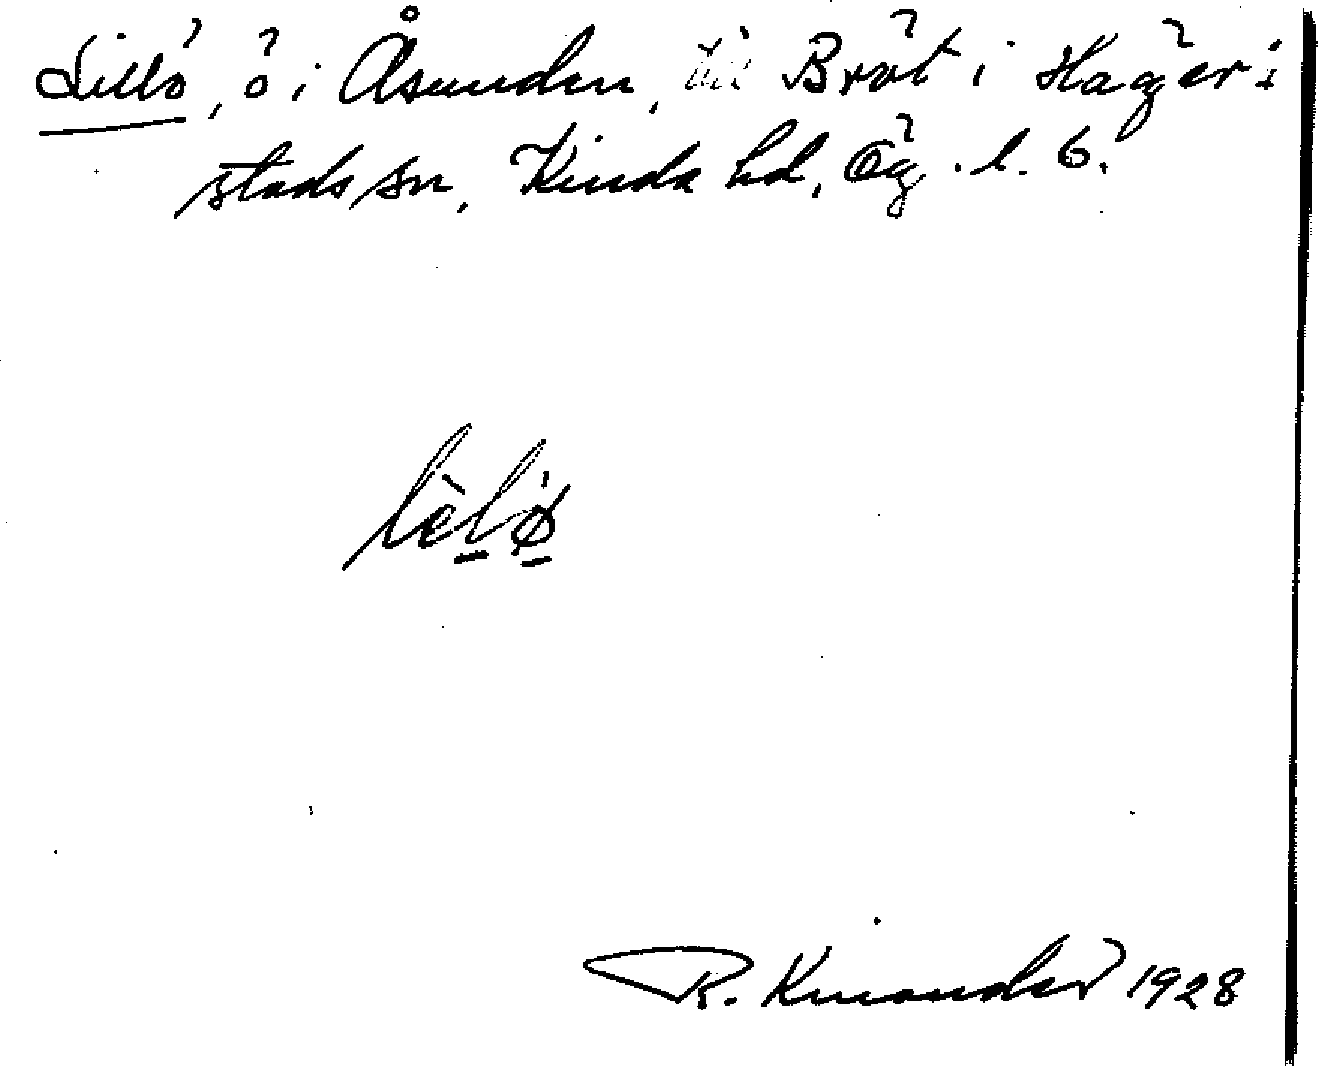 Lillö, ö i Åsunden, till Bröt i Häger-
stads sn, Kinda hd, Ög. l. 6.
lèlǿ
R. Kinander 1928